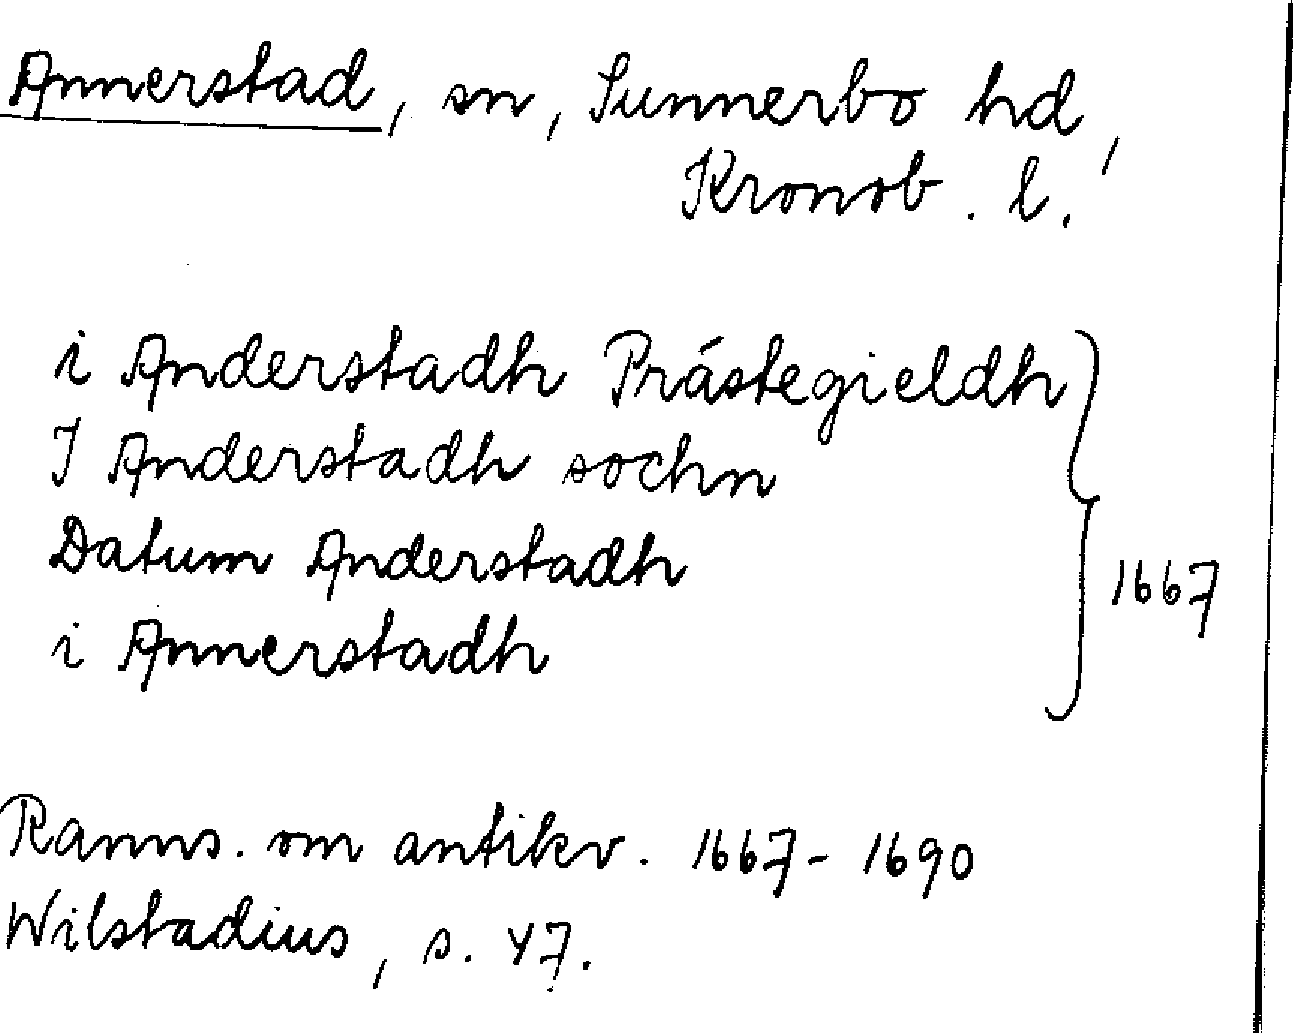 Annerstad, sn, Sunnerbo hd,
Kronob. l.
i Anderstadh Prástegieldh
I Anderstadh sochn
Datum Anderstadh
i Annerstadh
1667
Ranns. om antikv. 1667-1690
Wilstadius, s. 47.